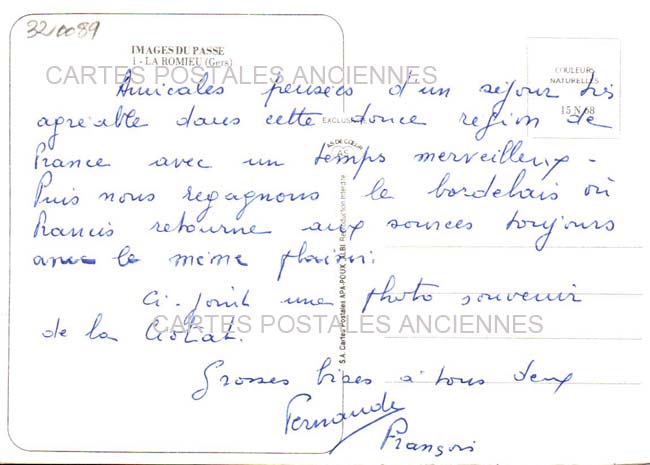 32/0089
IMAGES DU PASSE
1 - LA ROMIEU (Gers)
CARTES POSTALES ANCIENNES
COULEURS
NATURELLES
15 N 68
EXCLUSIVE
AS DE COEUR
S.A. Cartes Postales APA-POUX ALBI Reproduction interdite
Amicales pensées d'un séjour très
agréable dans cette douce région de
France avec un temps merveilleux -
Puis nous regagnons le bordelais où
Francis retourne aux sources toujours
avec le même plaisir.
Ci-joint une photo souvenir
de la Ciotat.
CARTES POSTALES ANCIENNES
Grosses bises à tous deux
Fernande
François